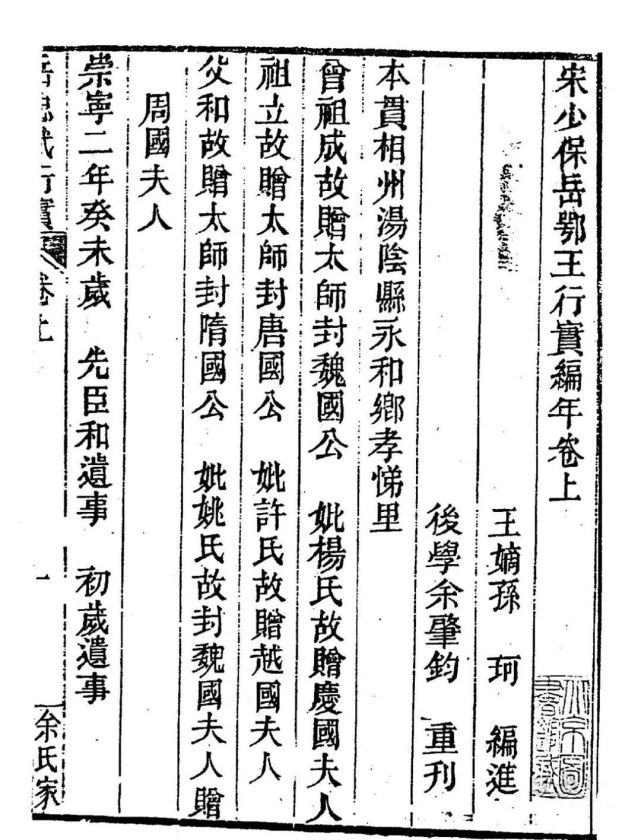 宋少保岳鄂王行實編年卷上
王嫡孫 珂 編進
後學余肇鈞 重刊
本貫相州湯陰縣永和鄉孝悌里
曾祖成故贈太師封魏國公 妣楊氏故贈慶國夫人
祖立故贈太師封唐國公 妣許氏故贈越國夫人
父和故贈太師封隋國公 妣姚氏故封魏國夫人贈
周國夫人
崇寧二年癸未歲 先臣和遺事 初歲遺事
岳忠武行實 卷上 一 余氏家